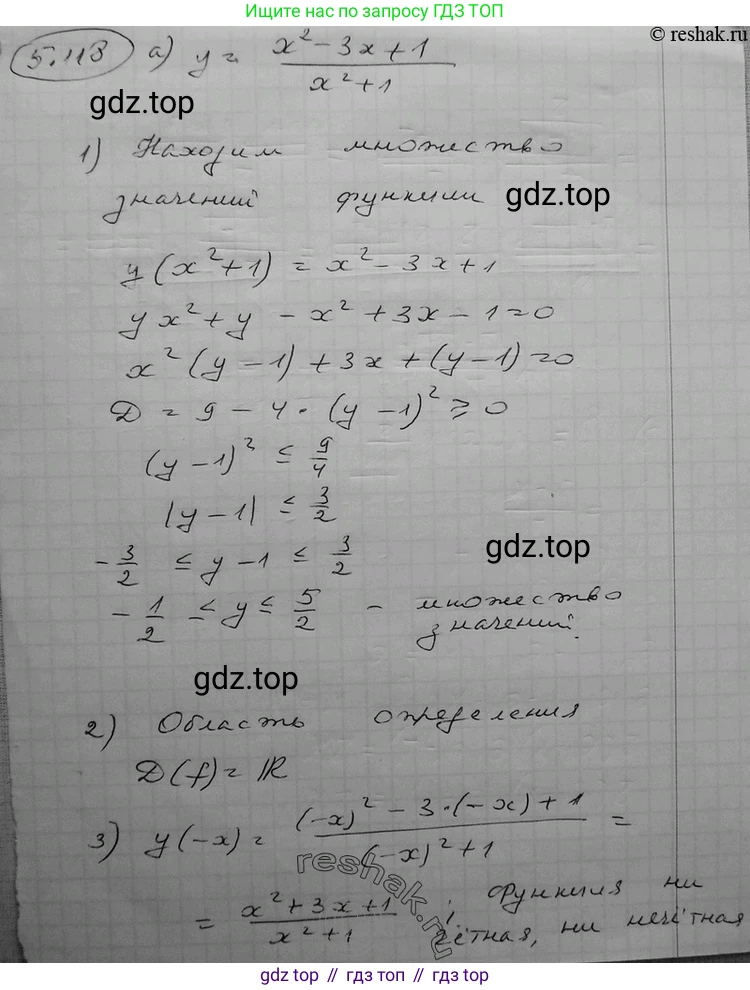 Ищите нас по запросу ГДЗ ТОП
© reshak.ru
5.113 а) y = \frac{x² - 3x + 1}{x² + 1}
gdz.top
1) Находим множество
значений функции gdz.top
y(x² + 1) = x² - 3x + 1
yx² + y - x² + 3x - 1 = 0
x²(y - 1) + 3x + (y - 1) = 0
D = 9 - 4 · (y - 1)² ≥ 0
(y - 1)² ≤ \frac{9}{4}
|y - 1| ≤ \frac{3}{2}
-\frac{3}{2} ≤ y - 1 ≤ \frac{3}{2} gdz.top
-\frac{1}{2} ≤ y ≤ \frac{5}{2} - множество
значений.
gdz.top
2) Область определения
D(f) = ℝ
3) y(-x) = \frac{(-x)² - 3·(-x) + 1}{(-x)² + 1} =
reshak.ru
= \frac{x² + 3x + 1}{x² + 1} ; функция ни
чётная, ни нечётная
gdz.top // гдз топ // gdz.top